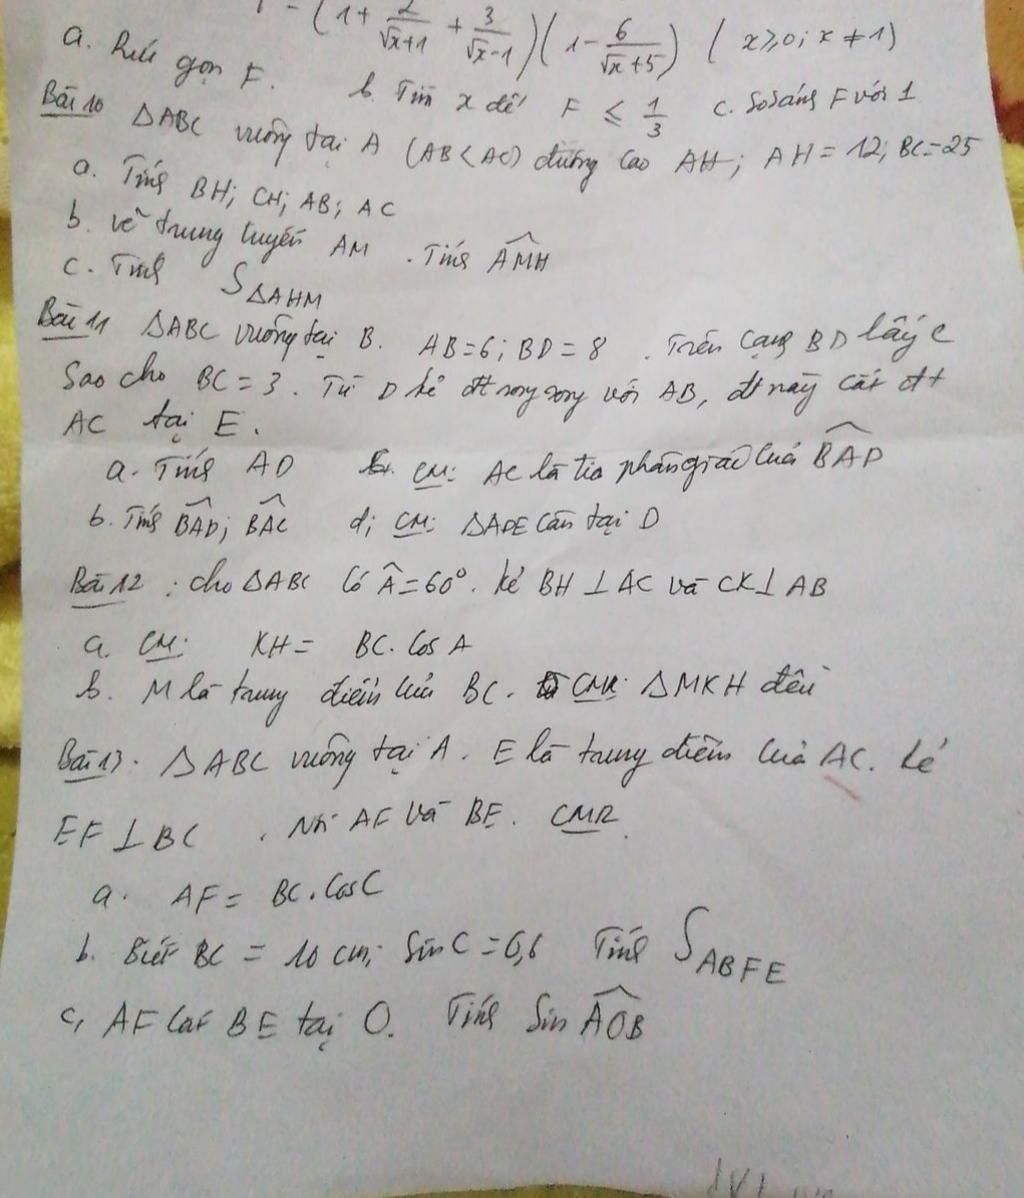 = (1 + 2/(√x+1) + 3/(√x-1)) (1 - 6/(√x+5)) ( x ≥ 0; x ≠ 1)
a. Rút gọn F. b. Tìm x để F ≤ 1/3 c. So sánh F với 1
Bài 10 ΔABC vuông tại A (AB < AC) đường cao AH; AH = 12; BC = 25
a. Tính BH; CH; AB; AC
b. vẽ trung tuyến AM. Tính \widehat{AMH}
c. Tính S_{ΔAHM}
Bài 11 ΔABC vuông tại B. AB = 6; BD = 8. Trên cạnh BD lấy C
Sao cho BC = 3. Từ D kẻ đt song song với AB, đt này cắt đt
AC tại E.
a. Tính AD CM: AC là tia phân giác của \widehat{BAD}
b. Tính \widehat{BAD}; \widehat{BAC} d, CM: ΔADE cân tại D
Bài 12: cho ΔABC có \widehat{A} = 60°. kẻ BH ⊥ AC và CK ⊥ AB
a. CM: KH = BC. Cos A
b. M là trung điểm của BC. CMR: ΔMKH đều
Bài 13. ΔABC vuông tại A. E là trung điểm của AC. kẻ
EF ⊥ BC. Nối AF và BE. CMR
a. AF = BC. Cos C
b. Biết BC = 10 cm; Sin C = 0,6 Tính S_{ABFE}
c, AF cắt BE tại O. Tính Sin \widehat{AOB}